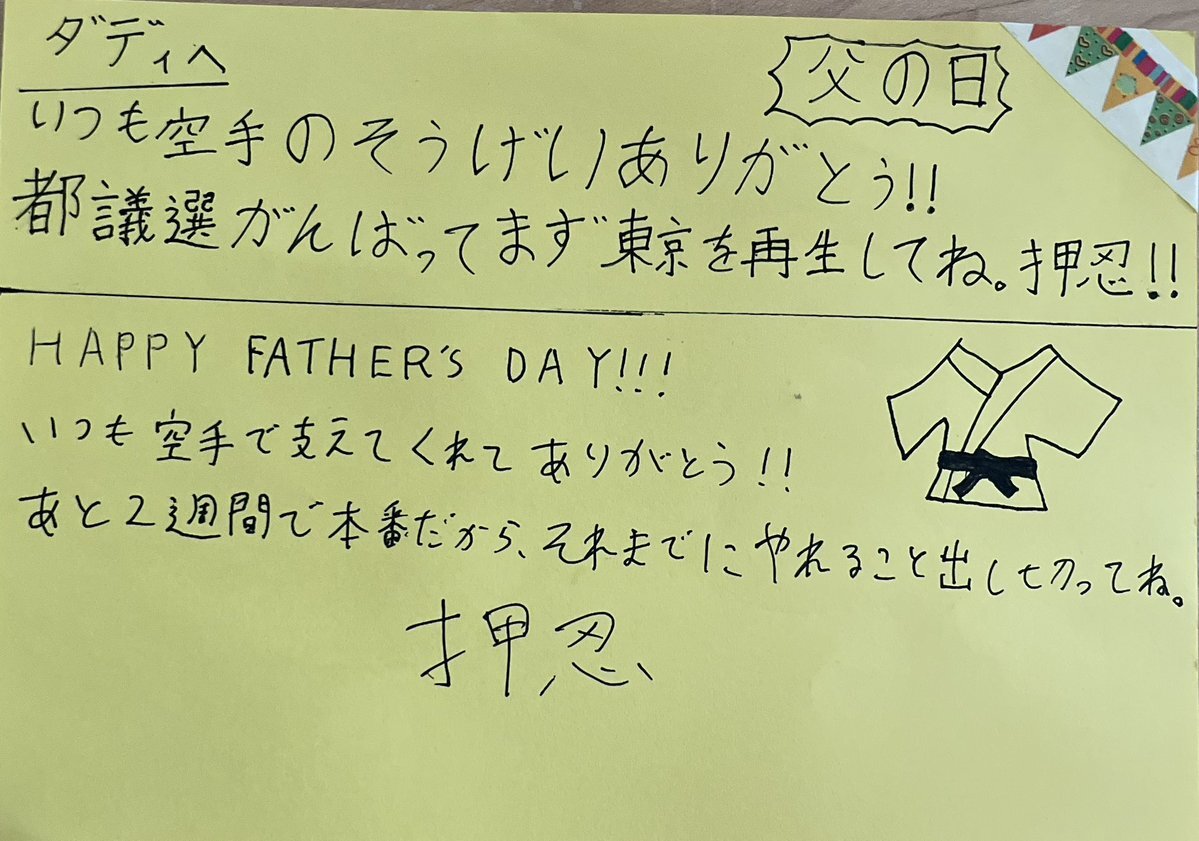 ダディへ
父の日
いつも空手のそうげいありがとう!!
都議選がんばってまず東京を再生してね。押忍!!
HAPPY FATHER'S DAY!!!
いつも空手で支えてくれてありがとう!!
あと2週間で本番だから、それまでにやれること出し切ってね。
押忍